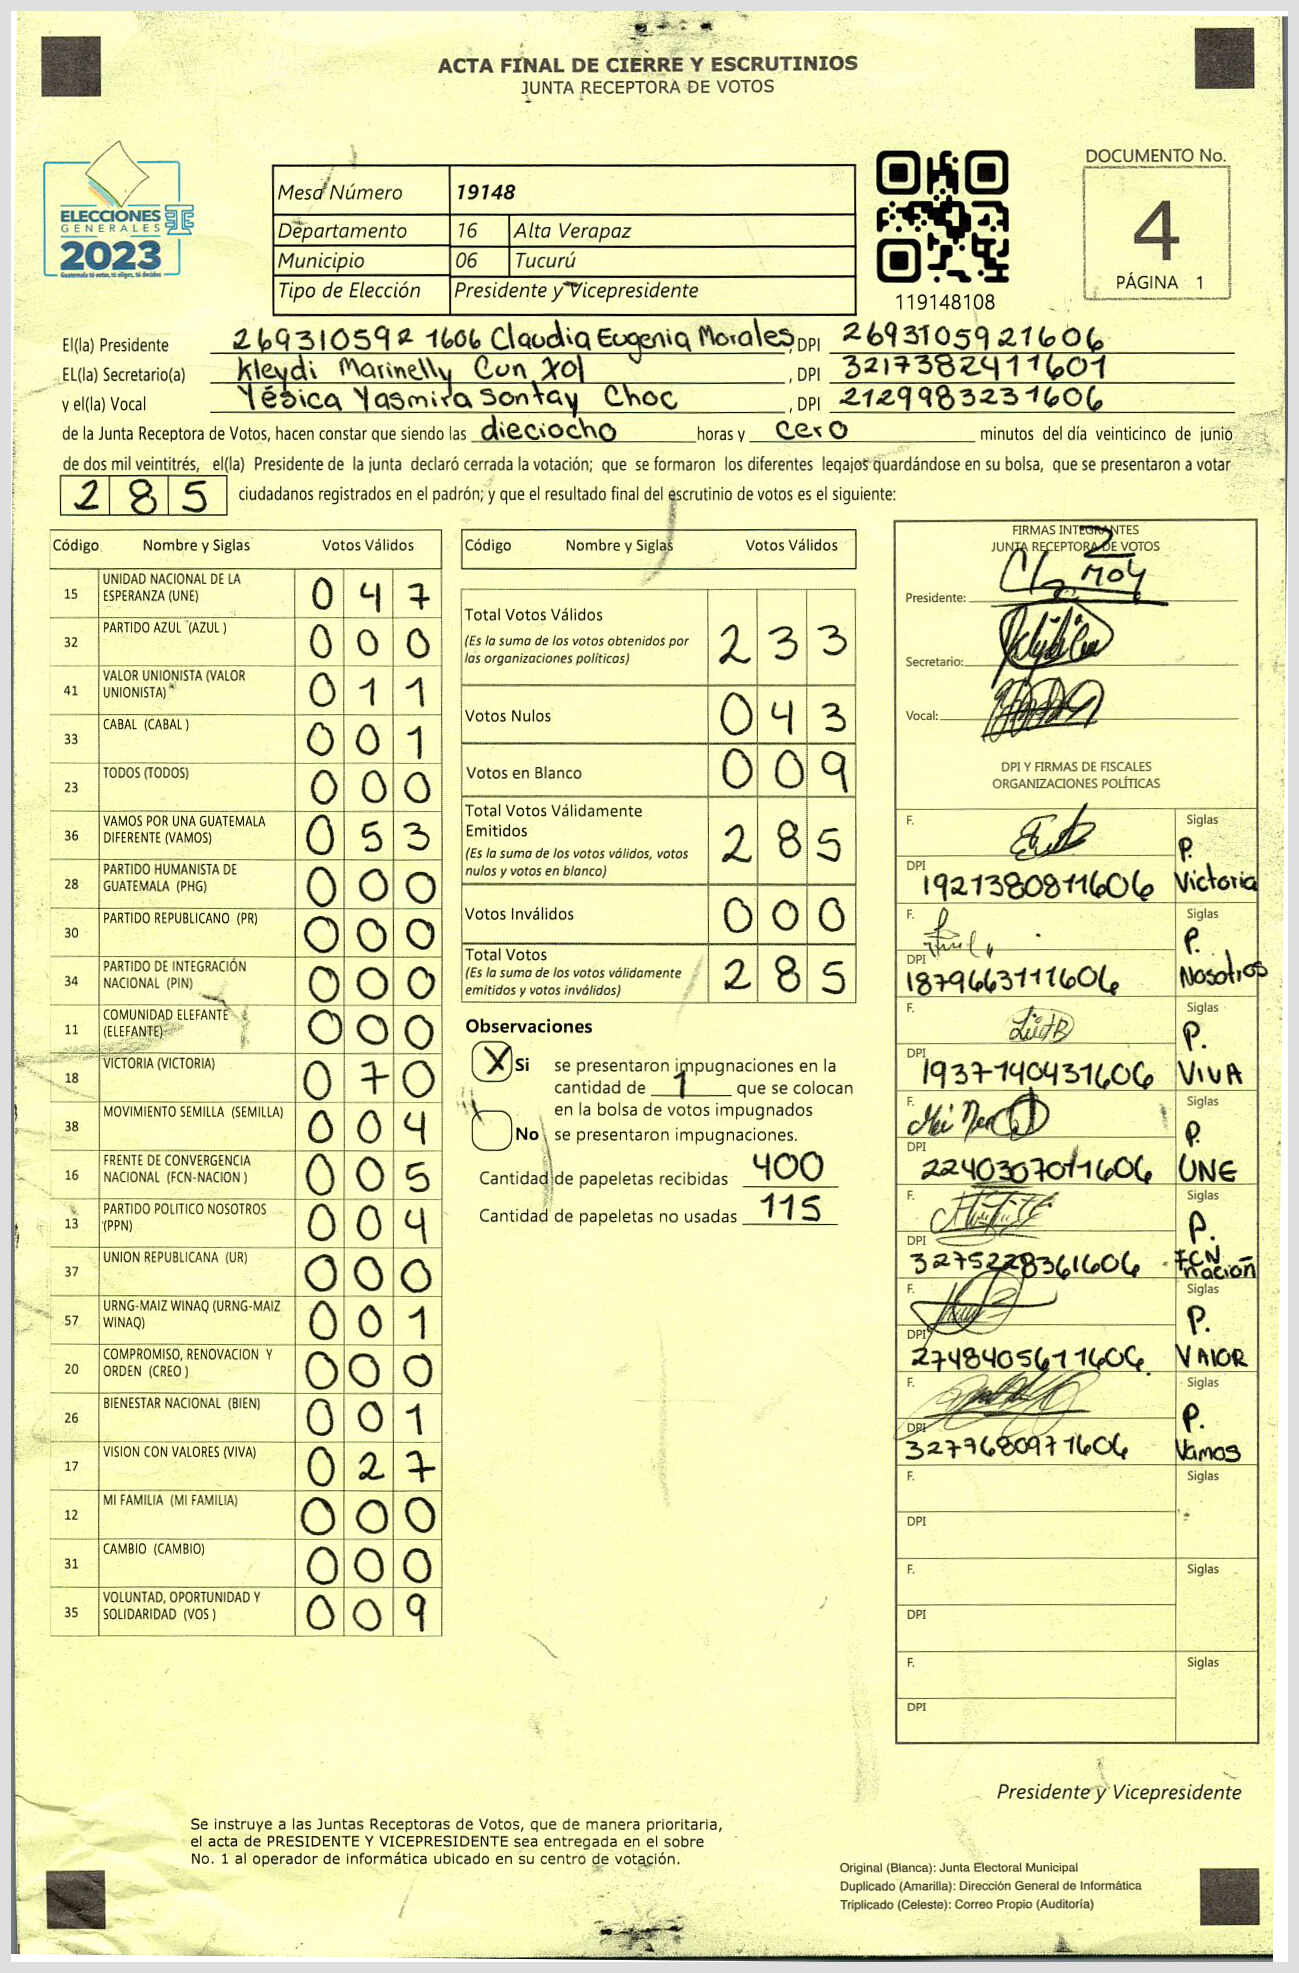 ACTA FINAL DE CIERRE Y ESCRUTINIOS
JUNTA RECEPTORA DE VOTOS
ELECCIONES
GENERALES
2023
Guatemala tú votas, tú eliges, tú decides
Mesa Número 19148
Departamento 16 Alta Verapaz
Municipio 06 Tucurú
Tipo de Elección Presidente y Vicepresidente
119148108
DOCUMENTO No.
4
PÁGINA 1
El(la) Presidente 2693105921606 Claudia Eugenia Morales, DPI 2693105921606
EL(la) Secretario(a) Kleydi Marinelly Cun Xol, DPI 3217382411601
y el(la) Vocal Yésica Yasmira Sontay Choc, DPI 2129983231606
de la Junta Receptora de Votos, hacen constar que siendo las dieciocho horas y cero minutos del día veinticinco de junio
de dos mil veintitrés, el(la) Presidente de la junta declaró cerrada la votación; que se formaron los diferentes legajos guardándose en su bolsa, que se presentaron a votar
285 ciudadanos registrados en el padrón; y que el resultado final del escrutinio de votos es el siguiente:
Código Nombre y Siglas Votos Válidos
15 UNIDAD NACIONAL DE LA ESPERANZA (UNE) 047
32 PARTIDO AZUL (AZUL ) 000
41 VALOR UNIONISTA (VALOR UNIONISTA) 011
33 CABAL (CABAL ) 001
23 TODOS (TODOS) 000
36 VAMOS POR UNA GUATEMALA DIFERENTE (VAMOS) 053
28 PARTIDO HUMANISTA DE GUATEMALA (PHG) 000
30 PARTIDO REPUBLICANO (PR) 000
34 PARTIDO DE INTEGRACIÓN NACIONAL (PIN) 000
11 COMUNIDAD ELEFANTE (ELEFANTE) 000
18 VICTORIA (VICTORIA) 070
38 MOVIMIENTO SEMILLA (SEMILLA) 004
16 FRENTE DE CONVERGENCIA NACIONAL (FCN-NACION ) 005
13 PARTIDO POLITICO NOSOTROS (PPN) 004
37 UNION REPUBLICANA (UR) 000
57 URNG-MAIZ WINAQ (URNG-MAIZ WINAQ) 001
20 COMPROMISO, RENOVACION Y ORDEN (CREO ) 000
26 BIENESTAR NACIONAL (BIEN) 001
17 VISION CON VALORES (VIVA) 027
12 MI FAMILIA (MI FAMILIA) 000
31 CAMBIO (CAMBIO) 000
35 VOLUNTAD, OPORTUNIDAD Y SOLIDARIDAD (VOS ) 009
Código Nombre y Siglas Votos Válidos
Total Votos Válidos 233
(Es la suma de los votos obtenidos por
las organizaciones políticas)
Votos Nulos 043
Votos en Blanco 009
Total Votos Válidamente
Emitidos 285
(Es la suma de los votos válidos, votos
nulos y votos en blanco)
Votos Inválidos 000
Total Votos 285
(Es la suma de los votos válidamente
emitidos y votos inválidos)
Observaciones
X Si se presentaron impugnaciones en la
cantidad de 1 que se colocan
en la bolsa de votos impugnados
No se presentaron impugnaciones.
Cantidad de papeletas recibidas 400
Cantidad de papeletas no usadas 115
FIRMAS INTEGRANTES
JUNTA RECEPTORA DE VOTOS
Presidente:
Secretario:
Vocal:
DPI Y FIRMAS DE FISCALES
ORGANIZACIONES POLÍTICAS
F. Siglas
DPI 1921380811606 P. Victoria
F. Siglas
DPI 1879663111606 P. Nosotros
F. Siglas
DPI 1937140431606 P. VIVA
F. Siglas
DPI 2240307011606 P. UNE
F. Siglas
DPI 3275228361606 P. FCN nación
F. Siglas
DPI 2748405611606 P. VAlOR
F. Siglas
DPI 3277680971606 P. Vamos
F. Siglas
DPI
F. Siglas
DPI
F. Siglas
DPI
Presidente y Vicepresidente
Se instruye a las Juntas Receptoras de Votos, que de manera prioritaria,
el acta de PRESIDENTE Y VICEPRESIDENTE sea entregada en el sobre
No. 1 al operador de informática ubicado en su centro de votación.
Original (Blanca): Junta Electoral Municipal
Duplicado (Amarilla): Dirección General de Informática
Triplicado (Celeste): Correo Propio (Auditoría)